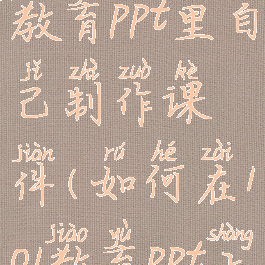 教育ppt里自
jǐ zhì zuò kè
己制作课
jiàn rú hé zài
件(如何在1
jiào yù shàng
01教育ppt上